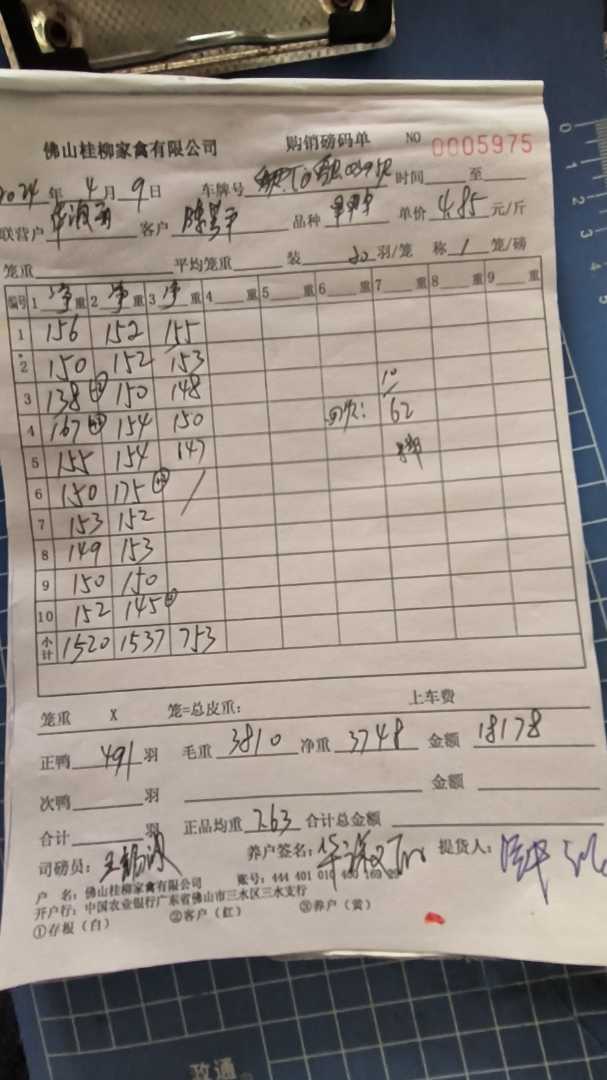 佛山桂柳家禽有限公司 购销磅码单 NO 0005975
2024年4月9日 车牌号 时间 至
联营户 客户 品种 单价 4.85 元/斤
笼重 平均笼重 装 羽/笼 称 1 笼/磅
编号 1 净重 2 净重 3 净重 4 重 5 重 6 重 7 重 8 重 9 重
1 156 152 155
2 150 152 153
3 138 150 148 10
4 167 154 150 62
5 155 154 147
6 150 175
7 153 152
8 149 153
9 150 150
10 152 145
小计 1520 1537 753
笼重 X 笼=总皮重: 上车费
正鸭 491 羽 毛重 3810 净重 3748 金额 18178
次鸭 羽 金额
合计 羽 正品均重 7.63 合计总金额
司磅员: 养户签名: 提货人:
户 名: 佛山桂柳家禽有限公司 账号: 444 401 010 400 169
开户行: 中国农业银行广东省佛山市三水区三水支行
①存根（白） ②客户（红） ③养户（黄）
政通
0
1
2
3
4
5